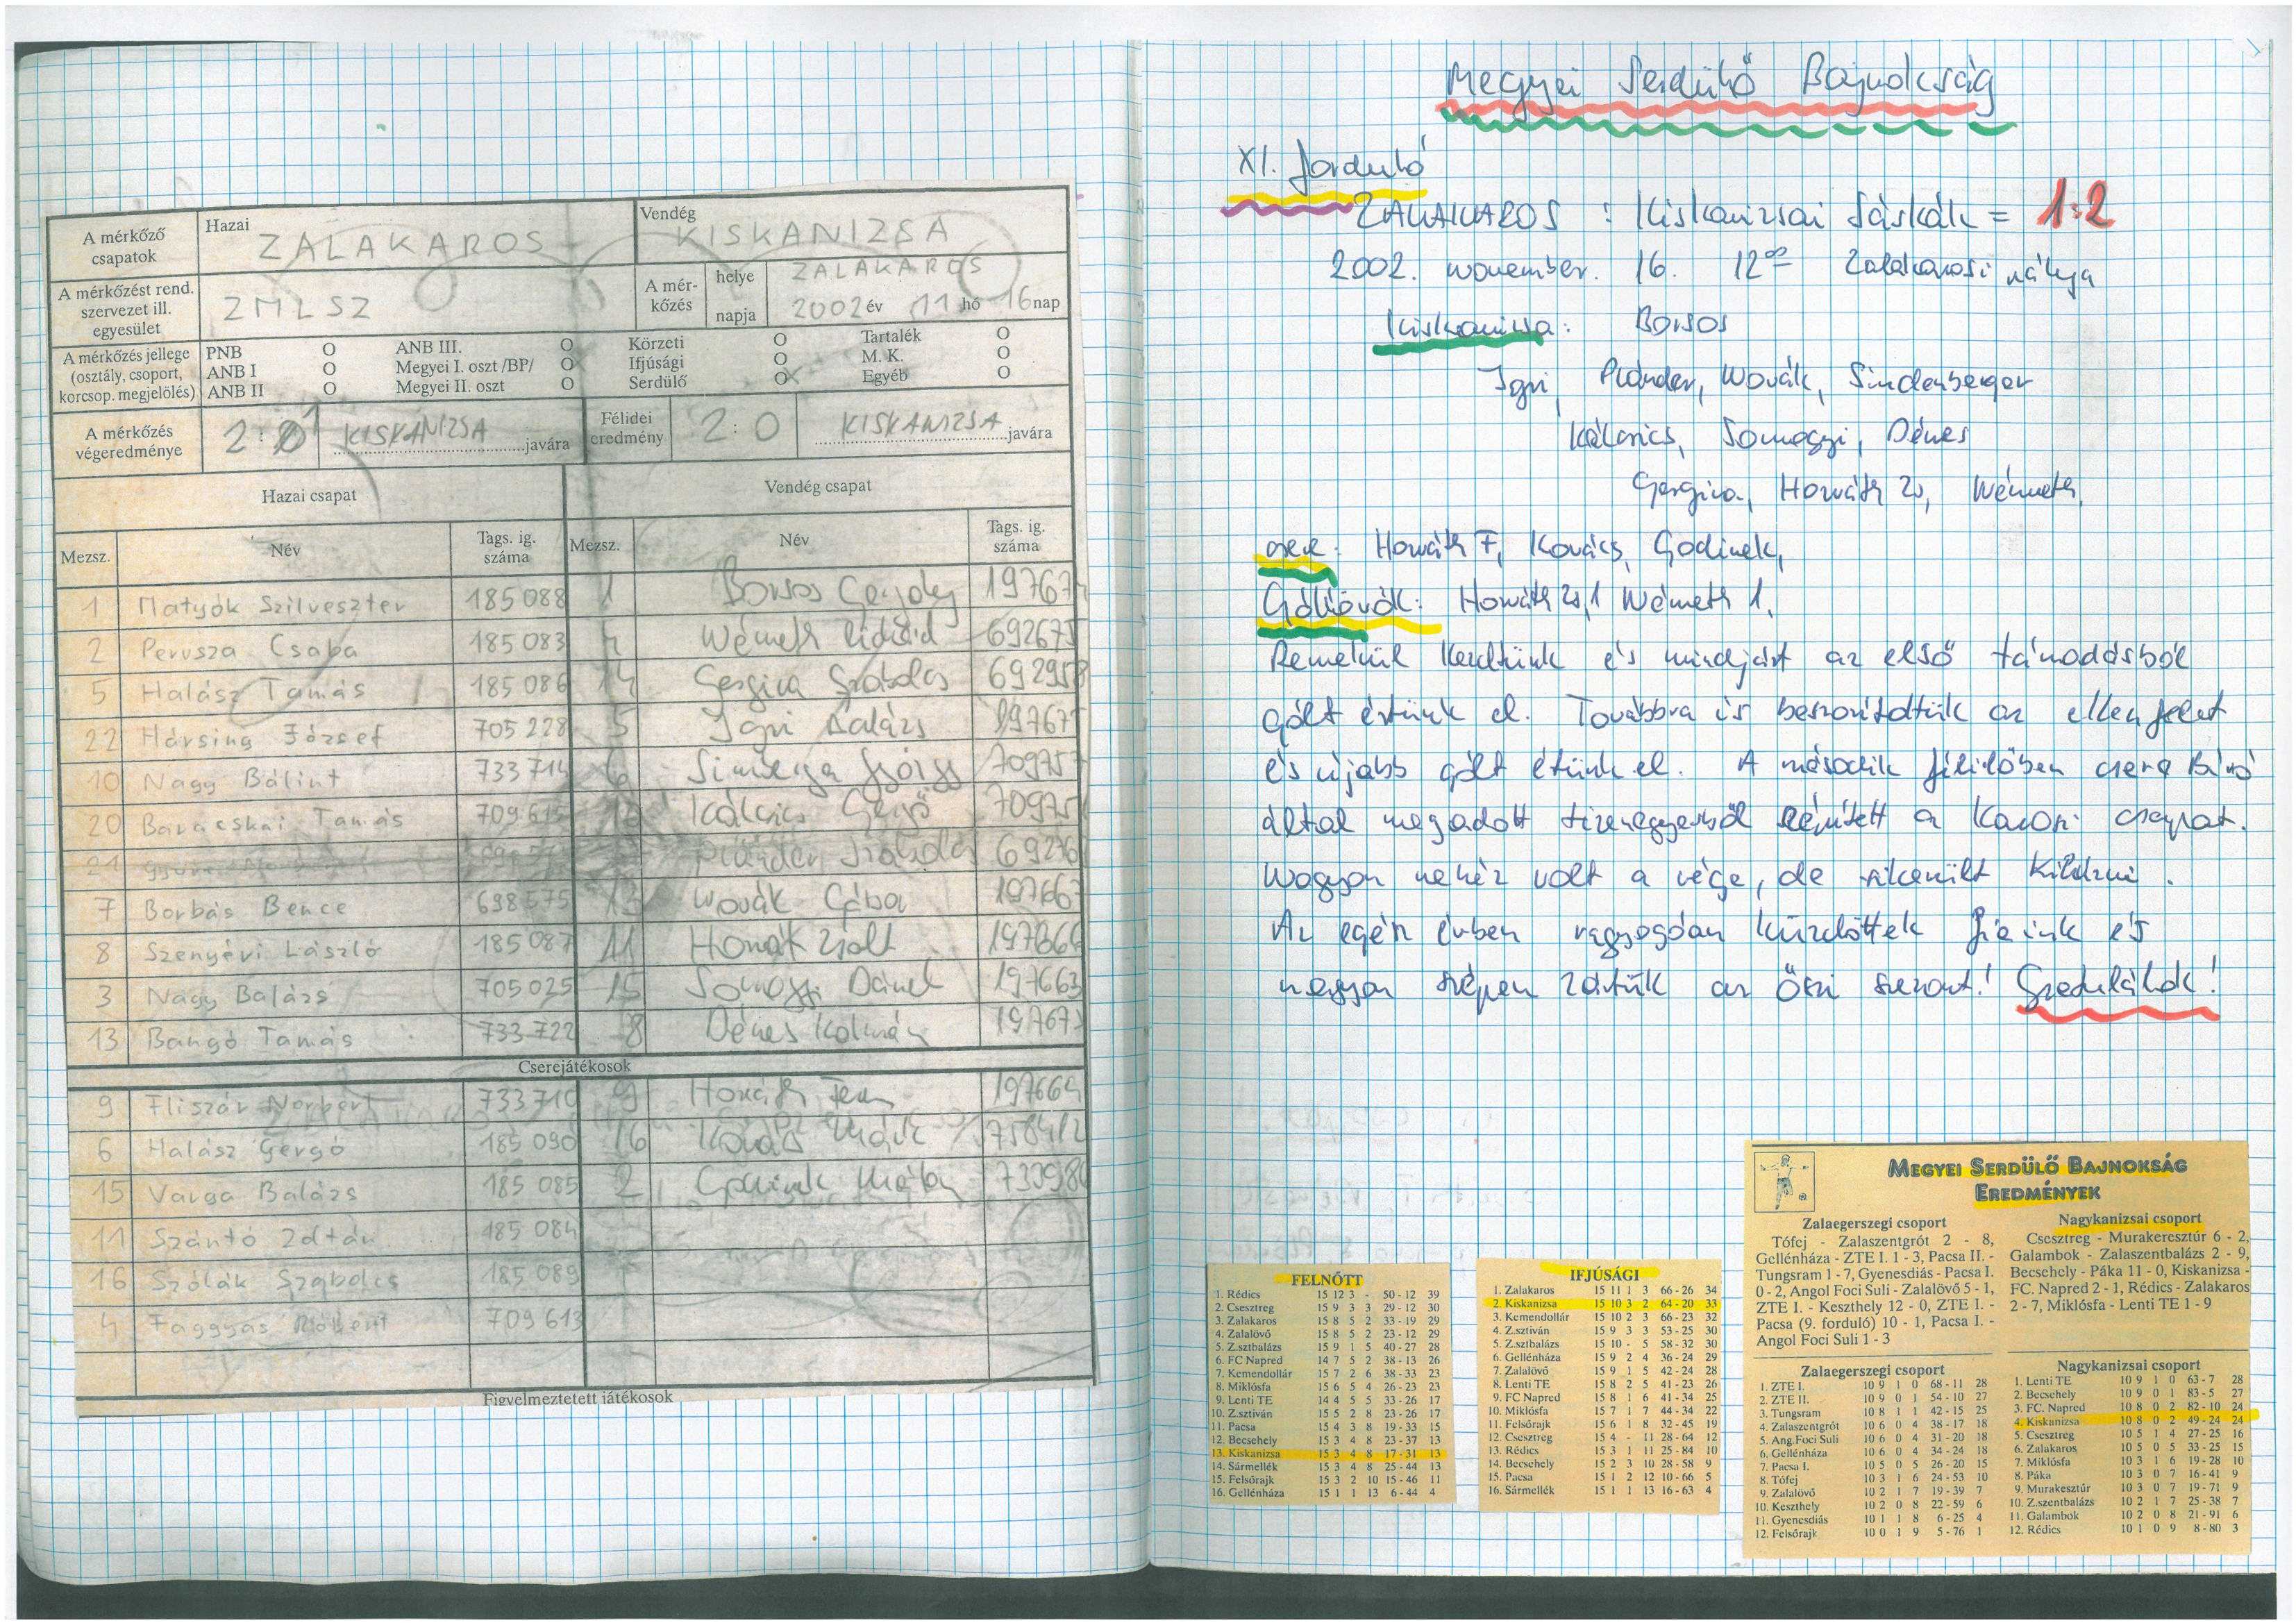 A mérkőző csapatok
Hazai ZALAKAROS
Vendég KISKANIZSA
A mérkőzést rend. szervezet ill. egyesület
ZMLSZ
A mér-kőzés helye ZALAKAROS
napja 2002 év 11 hó 16 nap
A mérkőzés jellege (osztály, csoport, korcsop. megjelölés)
PNB O ANB III. O Körzeti O Tartalék O
ANB I O Megyei I. oszt /BP/ O Ifjúsági O M. K. O
ANB II O Megyei II. oszt O Serdülő O Egyéb O
A mérkőzés végeredménye 2 : 1 KISKANIZSA javára
Félidei eredmény 2 : 0 KISKANIZSA javára
Hazai csapat Vendég csapat
Mezsz. Név Tags. ig. száma Mezsz. Név Tags. ig. száma
1 Matyók Szilveszter 185 088 1 Borsos Gergely
2 Perusza Csaba 185 083 Németh
5 Halász Tamás 185 086 14 Gergica Szabolcs
22 Hársing József 705 228 5 Igri Balázs
10 Nagy Bálint 733 714 6
20 Baracskai Tamás Kálcsics Gergő
21 Plánder Szabolcs
7 Borbás Bence 698 575 13 Novák Gábor
8 Szenyéri László 185 087 11 Horváth Zsolt
3 Nagy Balázs 705 025 15 Somogyi Dániel 197663
13 Bangó Tamás 733 722 8 Dénes Kálmán
Cserejátékosok
9 Fliszár Norbert 733 710 9 Horváth 197664
6 Halász Gergő 185 090 16 Kovács Márk 758412
15 Varga Balázs 185 085 2
11 Szántó Zoltán 185 084
16 Szólák Szabolcs 185 089
4 Faggyas Róbert 709 613
Figyelmeztetett játékosok
Megyei Serdülő Bajnokság
XI. forduló
ZALAKAROS : Kiskanizsai Sáskák = 1:2
2002. november. 16. 12⁰⁰ Zalakarosi pálya
Kiskanizsa: Borsos
Igri, Plánder, Novák, Sindenberger
Kálcsics, Somogyi, Dénes
Gergica, Horváth Zs, Németh,
csere: Horváth F, Kovács, Godinek,
Góllövők: Horváth Zs 1 Németh 1,
Remekül kezdtünk és mindjárt az első támadásból
gólt értünk el. Továbbra is beszorítottuk az ellenfelet
és újabb gólt értünk el. A második félidőben
által megadott tizenegyesből szépített a Karosi csapat.
Nagyon nehéz volt a vége, de sikerült kihúzni.
Az egész évben ragyogóan küzdöttek fiaink és
nagyon szépen zártuk az őszi szezont! Gratulálok!
FELNŐTT
1. Rédics 15 12 3 - 50 - 12 39
2. Csesztreg 15 9 3 3 29 - 12 30
3. Zalakaros 15 8 5 2 33 - 19 29
4. Zalalövő 15 8 5 2 23 - 12 29
5. Z.sztbalázs 15 9 1 5 40 - 27 28
6. FC Napred 14 7 5 2 38 - 13 26
7. Kemendollár 15 7 2 6 38 - 33 23
8. Miklósfa 15 6 5 4 26 - 23 23
9. Lenti TE 14 4 5 5 33 - 26 17
10. Z.sztiván 15 5 2 8 23 - 26 17
11. Pacsa 15 4 3 8 19 - 33 15
12. Becsehely 15 3 4 8 23 - 37 13
13. Kiskanizsa 15 3 4 8 17 - 31 13
14. Sármellék 15 3 4 8 25 - 44 13
15. Felsőrajk 15 3 2 10 15 - 46 11
16. Gellénháza 15 1 1 13 6 - 44 4
IFJÚSÁGI
1. Zalakaros 15 11 1 3 66 - 26 34
2. Kiskanizsa 15 10 3 2 64 - 20 33
3. Kemendollár 15 10 2 3 66 - 23 32
4. Z.sztiván 15 9 3 3 53 - 25 30
5. Z.sztbalázs 15 10 - 5 58 - 32 30
6. Gellénháza 15 9 2 4 36 - 24 29
7. Zalalövő 15 9 1 5 42 - 24 28
8. Lenti TE 15 8 2 5 41 - 23 26
9. FC Napred 15 8 1 6 41 - 34 25
10. Miklósfa 15 7 1 7 44 - 34 22
11. Felsőrajk 15 6 1 8 32 - 45 19
12. Csesztreg 15 4 - 11 28 - 64 12
13. Rédics 15 3 1 11 25 - 84 10
14. Becsehely 15 2 3 10 28 - 58 9
15. Pacsa 15 1 2 12 10 - 66 5
16. Sármellék 15 1 1 13 16 - 63 4
MEGYEI SERDÜLŐ BAJNOKSÁG
EREDMÉNYEK
Zalaegerszegi csoport
Tófej - Zalaszentgrót 2 - 8,
Gellénháza - ZTE I. 1 - 3, Pacsa II. -
Tungsram 1 - 7, Gyenesdiás - Pacsa I.
0 - 2, Angol Foci Suli - Zalalövő 5 - 1,
ZTE I. - Keszthely 12 - 0, ZTE I. -
Pacsa (9. forduló) 10 - 1, Pacsa I. -
Angol Foci Suli 1 - 3
Nagykanizsai csoport
Csesztreg - Murakeresztúr 6 - 2,
Galambok - Zalaszentbalázs 2 - 9,
Becsehely - Páka 11 - 0, Kiskanizsa -
FC. Napred 2 - 1, Rédics - Zalakaros
2 - 7, Miklósfa - Lenti TE 1 - 9
Zalaegerszegi csoport
1. ZTE I. 10 9 1 0 68 - 11 28
2. ZTE II. 10 9 0 1 54 - 10 27
3. Tungsram 10 8 1 1 42 - 15 25
4. Zalaszentgrót 10 6 0 4 38 - 17 18
5. Ang.Foci Suli 10 6 0 4 31 - 20 18
6. Gellénháza 10 6 0 4 34 - 24 18
7. Pacsa I. 10 5 0 5 26 - 20 15
8. Tófej 10 3 1 6 24 - 53 10
9. Zalalövő 10 2 1 7 19 - 39 7
10. Keszthely 10 2 0 8 22 - 59 6
11. Gyenesdiás 10 1 1 8 6 - 25 4
12. Felsőrajk 10 0 1 9 5 - 76 1
Nagykanizsai csoport
1. Lenti TE 10 9 1 0 63 - 7 28
2. Becsehely 10 9 0 1 83 - 5 27
3. FC. Napred 10 8 0 2 82 - 10 24
4. Kiskanizsa 10 8 0 2 49 - 24 24
5. Csesztreg 10 5 1 4 27 - 25 16
6. Zalakaros 10 5 0 5 33 - 25 15
7. Miklósfa 10 3 1 6 19 - 28 10
8. Páka 10 3 0 7 16 - 41 9
9. Murakesztúr 10 3 0 7 19 - 71 9
10. Z.szentbalázs 10 2 1 7 25 - 38 7
11. Galambok 10 2 0 8 21 - 91 6
12. Rédics 10 1 0 9 8 - 80 3